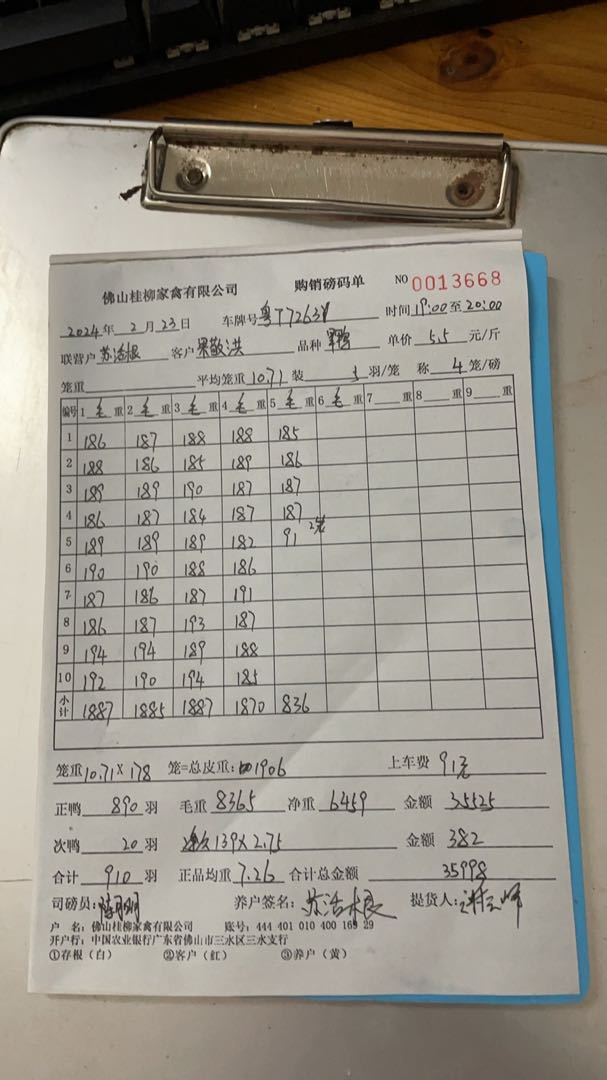 佛山桂柳家禽有限公司 购销磅码单 NO 0013668
2024年 2月 23日 车牌号 粤T7263 时间 19:00至20:00
联营户 苏活根 客户 梁敬洪 品种 单价 5.5 元/斤
笼重 平均笼重 10.71 装 羽/笼 称 4 笼/磅
编号 1 毛 重 2 毛 重 3 毛 重 4 毛 重 5 毛 重 6 毛 重 7 重 8 重 9 重
1 186 187 188 188 185
2 188 186 185 189 186
3 189 189 190 187 187
4 186 187 184 187 187
5 189 189 189 182 91 2笼
6 190 190 188 186
7 187 186 187 191
8 186 187 193 187
9 194 194 189 188
10 192 190 194 185
小计 1887 1885 1887 1870 836
笼重 10.71 X 178 笼=总皮重: 1906 上车费 91元
正鸭 890 羽 毛重 8365 净重 6459 金额 35525
次鸭 20 羽 139 X 2.75 金额 382
合计 910 羽 正品均重 7.26 合计总金额 35998
司磅员: 养户签名: 苏活根 提货人:
户 名: 佛山桂柳家禽有限公司 账号: 444 401 010 400 169 29
开户行: 中国农业银行广东省佛山市三水区三水支行
①存根(白) ②客户(红) ③养户(黄)